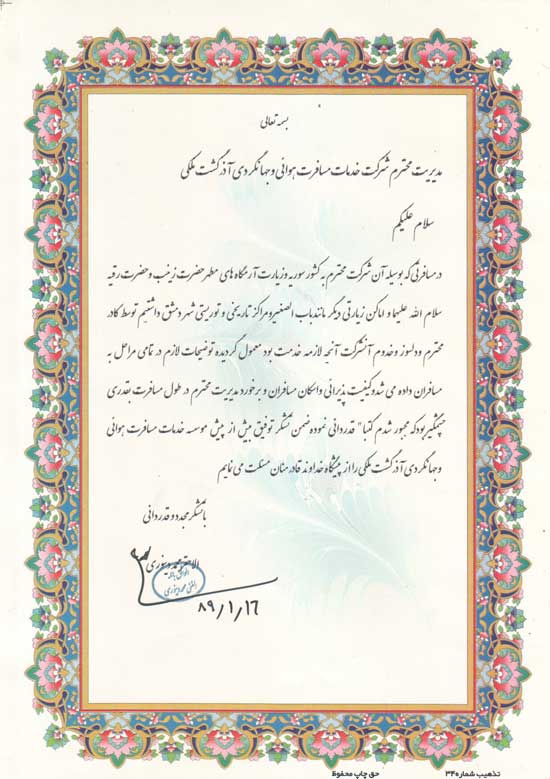 بسمه تعالی
مدیریت محترم شرکت خدمات مسافرت هوائی و جهانگردی آذر گشت ملکی
سلام علیکم
در مسافرتی که بوسیله آن شرکت محترم به کشور سوریه و زیارت آرمگاه های مطهر حضرت زینب و حضرت رقیه
سلام الله علیهما و اماکن زیارتی دیگر مانند باب الصغیر و مراکز تاریخی و توریستی شهر دمشق داشتیم توسط کادر
محترم و دلسوز و خدوم آنشرکت آنچه لازمه خدمت بود معمول گردیده توضیحات لازم در تمامی مراحل به
مسافران داده می شد و کیفیت پذیرائی و اسکان مسافران و برخورد مدیریت محترم در طول مسافرت بقدری
چشمگیر بود که مجبور شدم کتبا" قدردانی نموده ضمن تشکر توفیق بیش از پیش موسسه خدمات مسافرت هوائی
و جهانگردی آذر گشت ملکی را از پیشگاه خداوند قادر منان مسئلت می نمایم
با تشکر مجدد و قدردانی
الاحقر محمد دینوری
۸۹/۱/۱۶
تذهیب شماره ۳۴۰
حق چاپ محفوظ